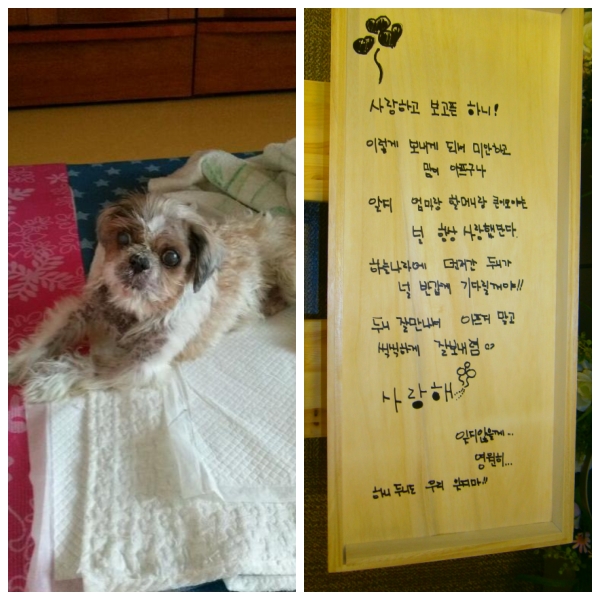 사랑하고 보고픈 하니!
이렇게 보내게 되어 미안하고
맘이 아프구나
알지 엄마랑 할머니랑
널 항상 사랑했단다
하늘나라에 먼저간 두리가
널 반갑게 기다릴거야!!
두리 잘만나서 아프지 말고
씩씩하게 잘보내렴
사랑해
잊지않을게..
영원히...
하니 두리 우리